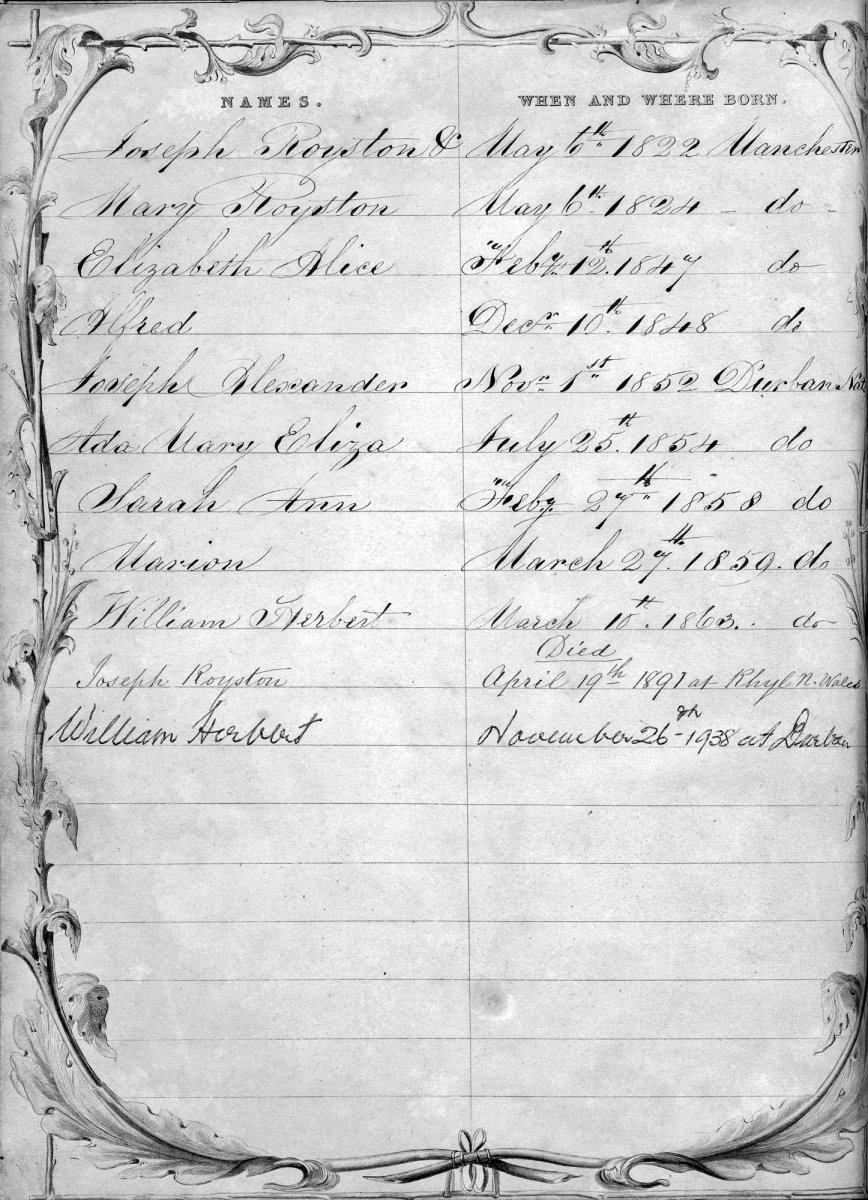 NAMES. WHEN AND WHERE BORN.
Joseph Royston & May 6th 1822 Manchester
Mary Royston May 6th 1824 - do -
Elizabeth Alice Feby 12th. 1847 do
Alfred Decr 10th. 1848 do
Joseph Alexander Novr 1st 1852 Durban Nat
Ada Mary Eliza July 25th. 1854 do
Sarah Ann Feby 27th 1858 do
Marion March 27th. 1859. do
William Herbert March 10th. 1863. do
Died
Joseph Royston April 19th 1891 at Rhyl N. Wales
William Herbert November 26th 1938 at Durban